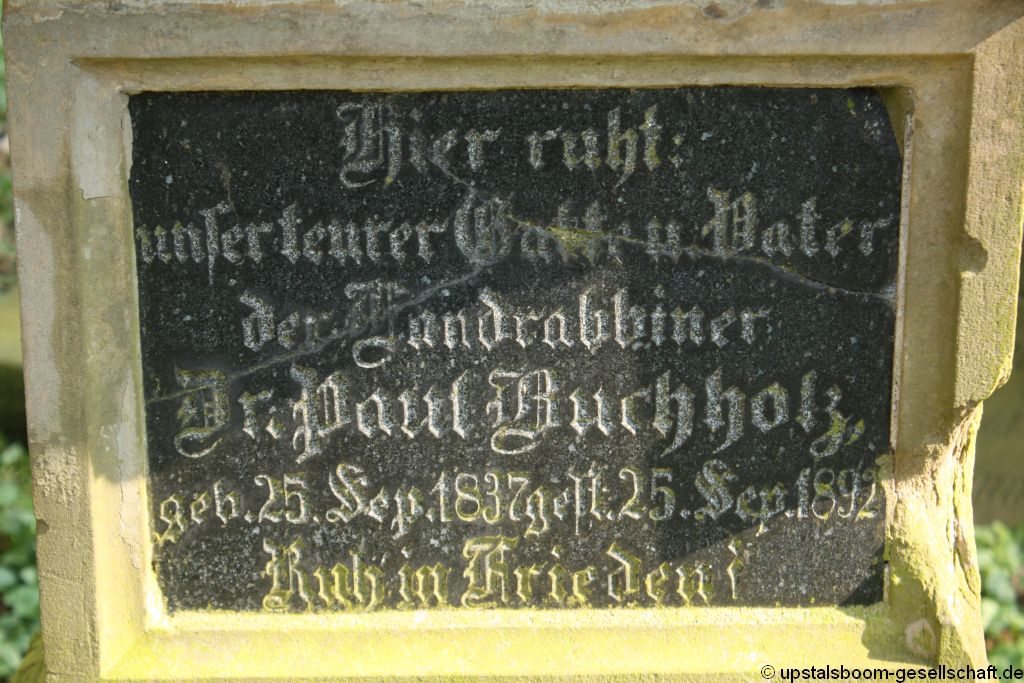 Hier ruht:
unser teurer Gatte u. Vater
der Landrabbiner
Dr. Paul Buchholz,
geb. 25. Sep. 1837 gest. 25. Sep. 1892
Ruh' in Frieden!
© upstalsboom-gesellschaft.de